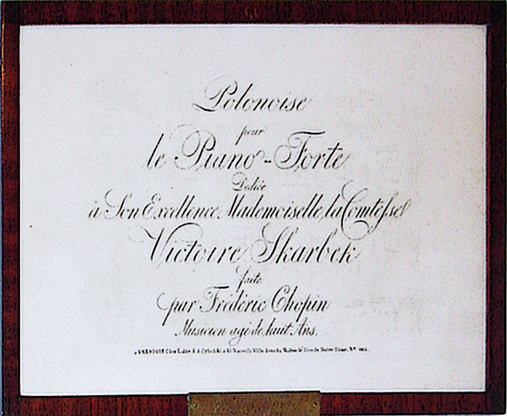 Polonoise
pour
le Piano-Forte
Dédiée
à Son Excellence Mademoiselle la Comtesse
Victoire Skarbek
faite
par Frédéric Chopin
Musicien agé de huit Ans.
à VARSOVIE Chez